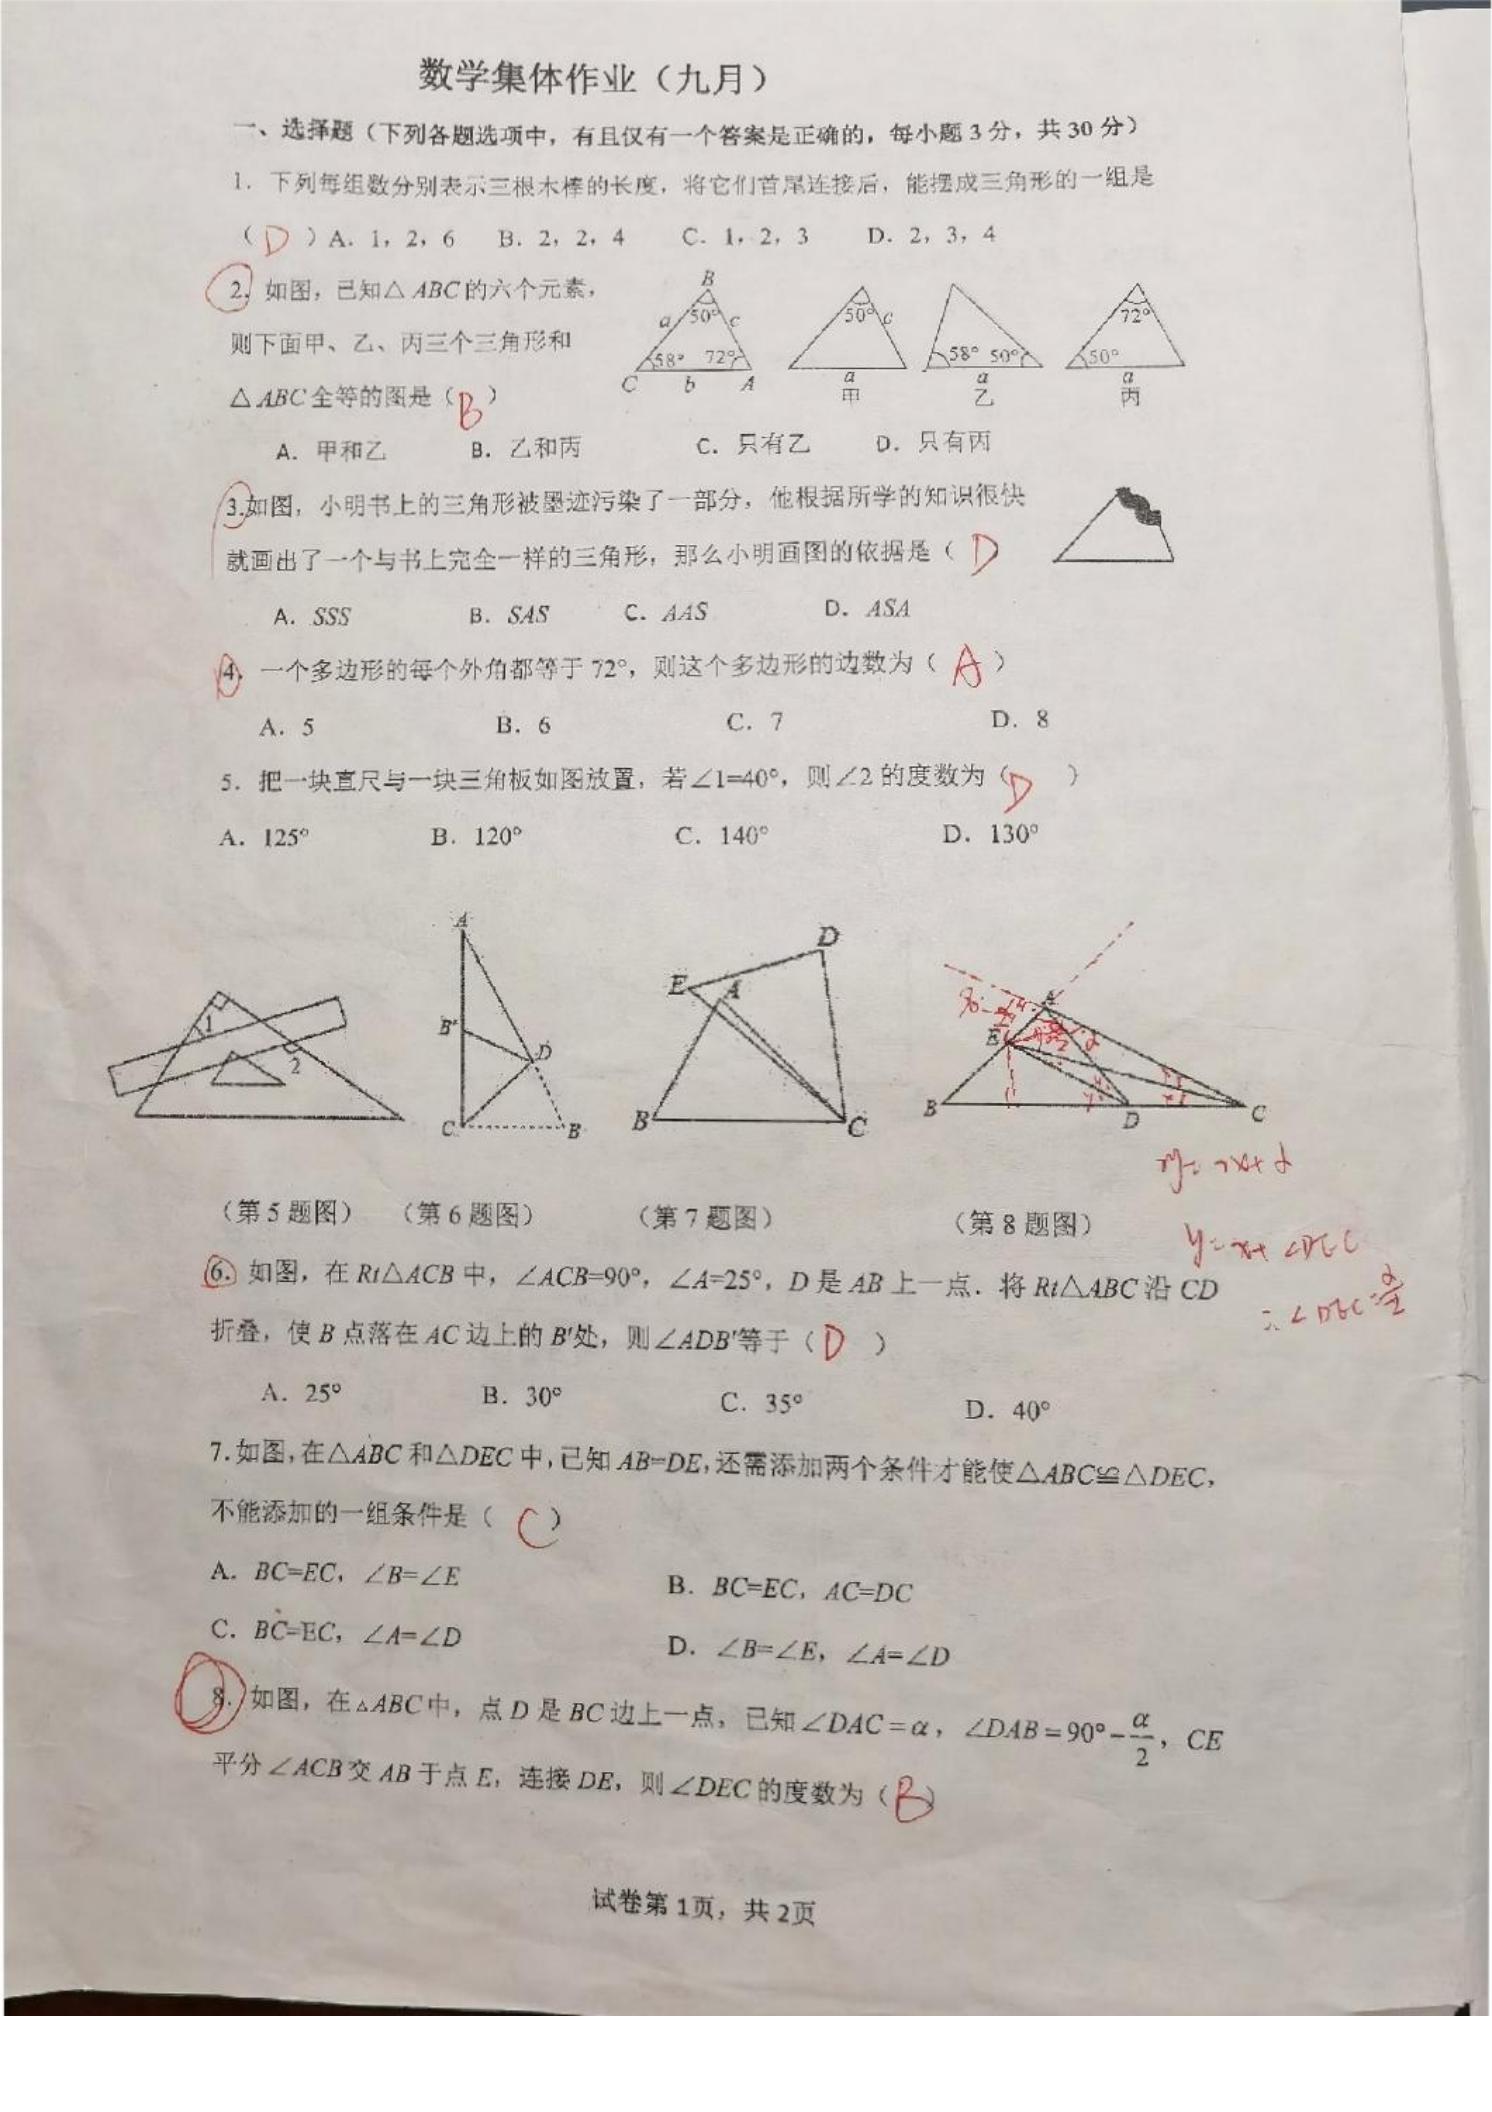 数学集体作业（九月）
一、选择题（下列各题选项中，有且仅有一个答案是正确的，每小题3分，共30分）
1. 下列每组数分别表示三根木棒的长度，将它们首尾连接后，能摆成三角形的一组是
（ D ）A. 1，2，6 B. 2，2，4 C. 1，2，3 D. 2，3，4
2. 如图，已知△ABC的六个元素，
则下面甲、乙、丙三个三角形和
△ABC全等的图是（ B ）
B
a 50° c
58° 72°
C b A
50° c
a
甲
58° 50°
a
乙
72°
50°
a
丙
A. 甲和乙 B. 乙和丙 C. 只有乙 D. 只有丙
3.如图，小明书上的三角形被墨迹污染了一部分，他根据所学的知识很快
就画出了一个与书上完全一样的三角形，那么小明画图的依据是（ D ）
A. SSS B. SAS C. AAS D. ASA
4. 一个多边形的每个外角都等于72°，则这个多边形的边数为（ A ）
A. 5 B. 6 C. 7 D. 8
5. 把一块直尺与一块三角板如图放置，若∠1=40°，则∠2的度数为（ D ）
A. 125° B. 120° C. 140° D. 130°
1
2
A
B'
D
C B
D
E A
B C
A
E
B D C
（第5题图） （第6题图） （第7题图） （第8题图）
y=x+∠DEC
∴∠DEC=α/2
6. 如图，在Rt△ACB中，∠ACB=90°，∠A=25°，D是AB上一点．将Rt△ABC沿CD
折叠，使B点落在AC边上的B'处，则∠ADB'等于（ D ）
A. 25° B. 30° C. 35° D. 40°
7.如图,在△ABC和△DEC中,已知AB=DE,还需添加两个条件才能使△ABC≌△DEC,
不能添加的一组条件是（ C ）
A. BC=EC，∠B=∠E B. BC=EC，AC=DC
C. BC=EC，∠A=∠D D. ∠B=∠E，∠A=∠D
8. 如图，在△ABC中，点D是BC边上一点，已知∠DAC=α，∠DAB=90°−α/2，CE
平分∠ACB交AB于点E，连接DE，则∠DEC的度数为（ B ）
试卷第1页，共2页